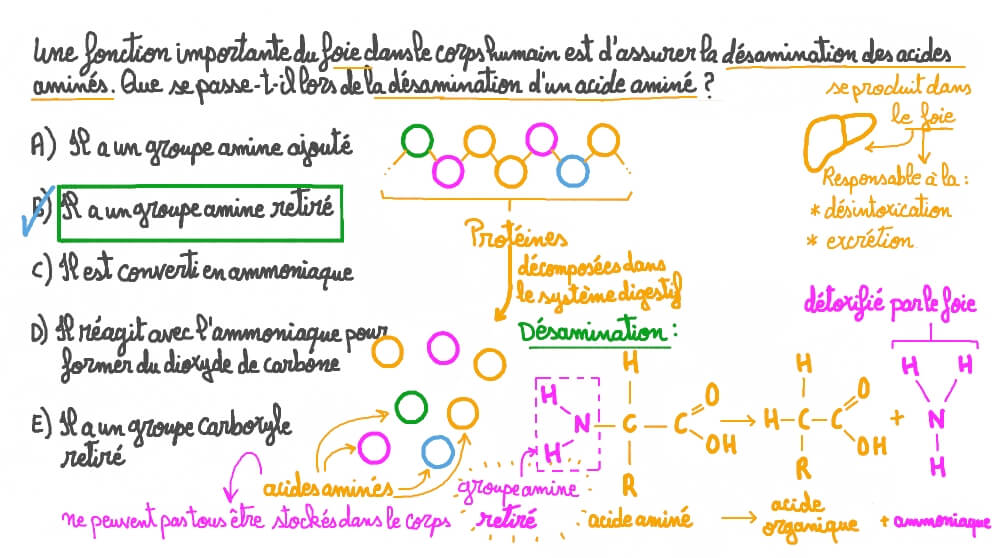 Une fonction importante du foie dans le corps humain est d'assurer la désamination des acides
aminés. Que se passe-t-il lors de la désamination d'un acide aminé ?
A) Il a un groupe amine ajouté
B) Il a un groupe amine retiré
C) Il est converti en ammoniaque
D) Il réagit avec l'ammoniaque pour
former du dioxyde de carbone
E) Il a un groupe carboxyle
retiré
Protéines
décomposées dans
le système digestif
acides aminés
ne peuvent pas tous être stockés dans le corps
se produit dans
le foie
Responsable à la :
* désintoxication
* excrétion
détoxifié par le foie
Désamination :
H H H H
H
N C C O OH
H
R
H C C O OH
R
+
N
H
groupe amine
retiré
acide aminé
acide
organique
+ ammoniaque